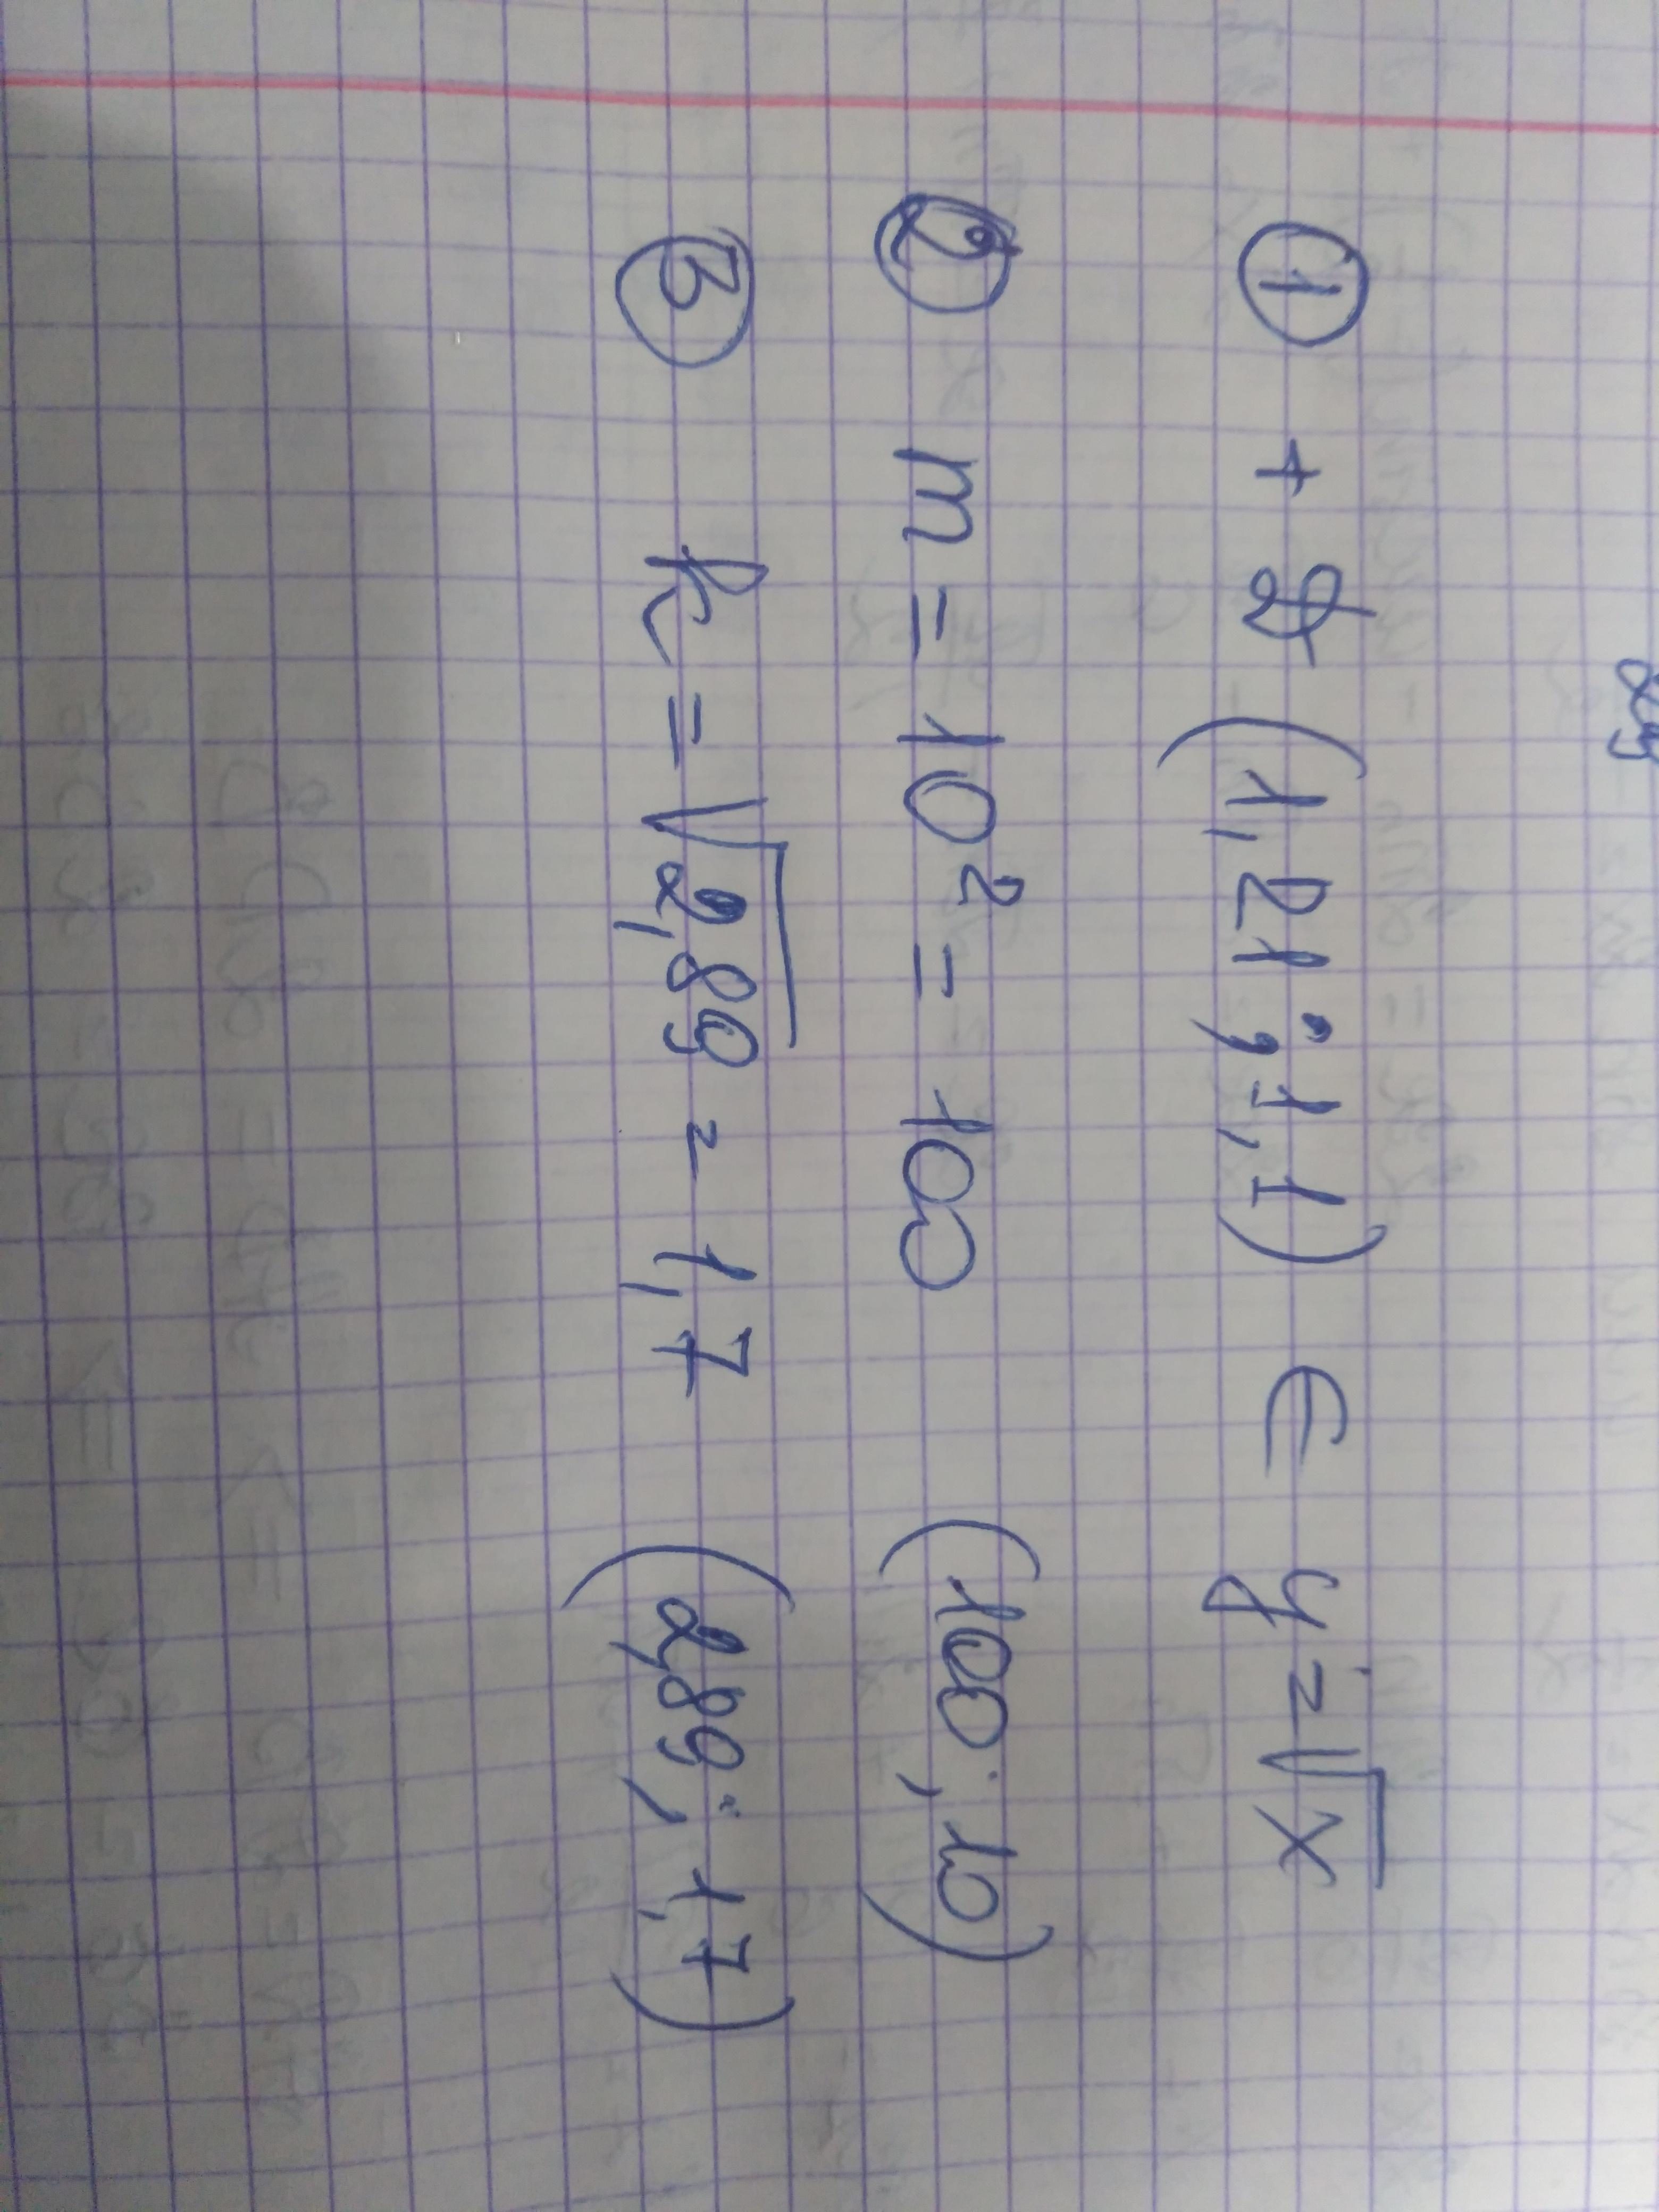 ① + D (1,21 ; 1,1) ∈ y = √x
② m = 10² = 100 (100 ; 10)
③ k = √2,89 = 1,7 (2,89 ; 1,7)